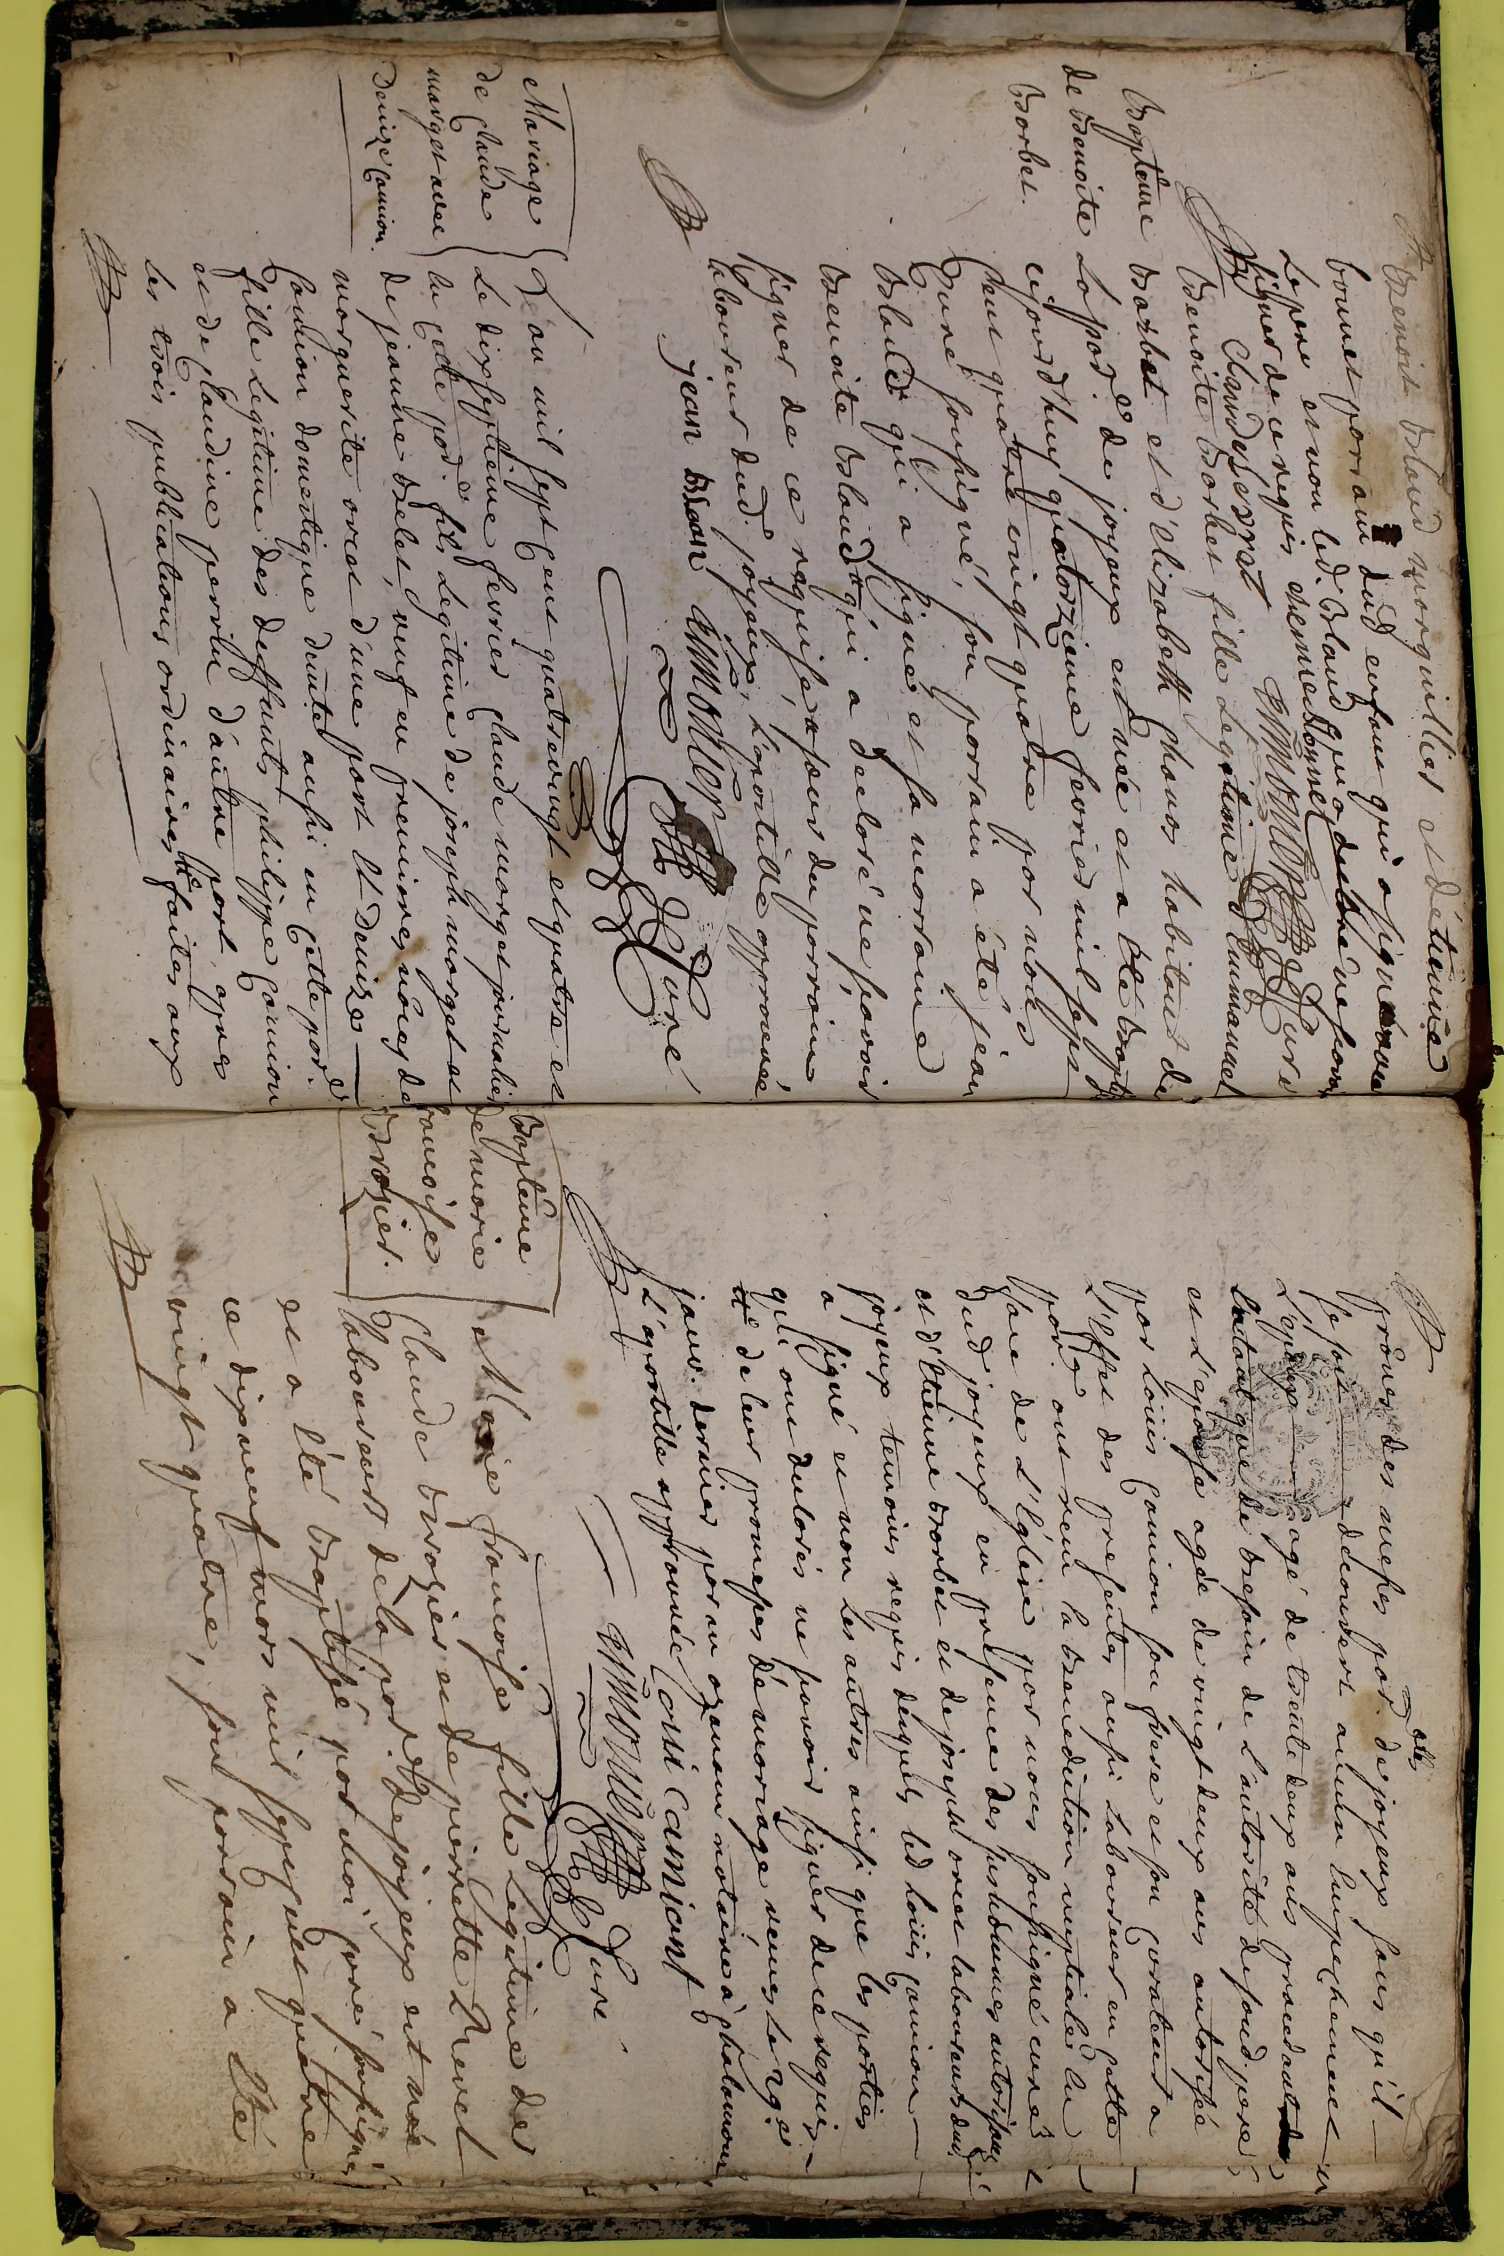 Benoit Blaud morguillier et d'étienne
bonnet parrain dud enfant qui a signé avec
Le pere et non led. Blaud qui a declaré ne savoir
signer de ce requis etienne bonnet
Claude serret Curé
Baptême
de Benoite
Barbet.
Benoite Barbet fille Legitime d'Emmanuel
Barbet et d'élizabeth Chanas habitant de
La par.e de joyeux est née et a été baptisée
cejourd'huy quatorzieme fevrier mil sept
Cent quatre vingt quatre par nous
Curé soussigné, son parrain a été jean
Blaud qui a signé et sa marraine
Benoite Blaud qui a declaré ne savoir
signer de ce requise soeur du parrain
laboureur dud. joyeux, L'apostille approuvée
jean Blan Curé
Mariage
de Claude
morget avec
Denize Camion.
L'an mil sept Cent quatrevingt et quatre et
Le dixseptieme fevrier Claude morget journalier
en Cette par.e fils Legitime de joseph morget et
de jeanne Belet, veuf en premieres nôces de
morguerite orcet d'une part et Denize
Camion domestique dunte aussi en Cette par.e
fille Legitime des deffunts philippe Camion
et de Claudine perrin d'autre part, apres
les trois publications ordinaires faites aux
prônes des messes par. de joyeux sans qu'il
se soit découvert aucun Empechement
L'époux agé de trente deux ans procedant
de L'autorité de soud. pere
et L'épouse agée de vingt deux ans autorisée
par Loüis Camion son frere et son curateur a
L'effet des presentes aussi Laboureur en Cette
par.e ont reçu la Benediction nuptiale en
face de L'église par nous soussigné curé
dud joyeux en presence de
et d'étienne Barbet et de joseph orcet laboureurs dud.
joyeux temoins requis desquels led Loüis Camion
a signé et non les autres ainsi que les parties
qui ont declarés ne savoir signer de ce requis
de leur promesses de mariage recues le
janv. dernier par notaire à Chalamont
L'apostille approuvée Loui Camiont
Curé.
Baptême
de marie
francoise
Brozier.
Marie francoise fille Legitime de
Claude Brozier et de pierrette Revel
Laboureurs de la par.e de joyeux est née
et a été Baptisé par moi Curé soussigné
ce dixneuf mars mil sept quatre
vingt quatre, son parrain a été